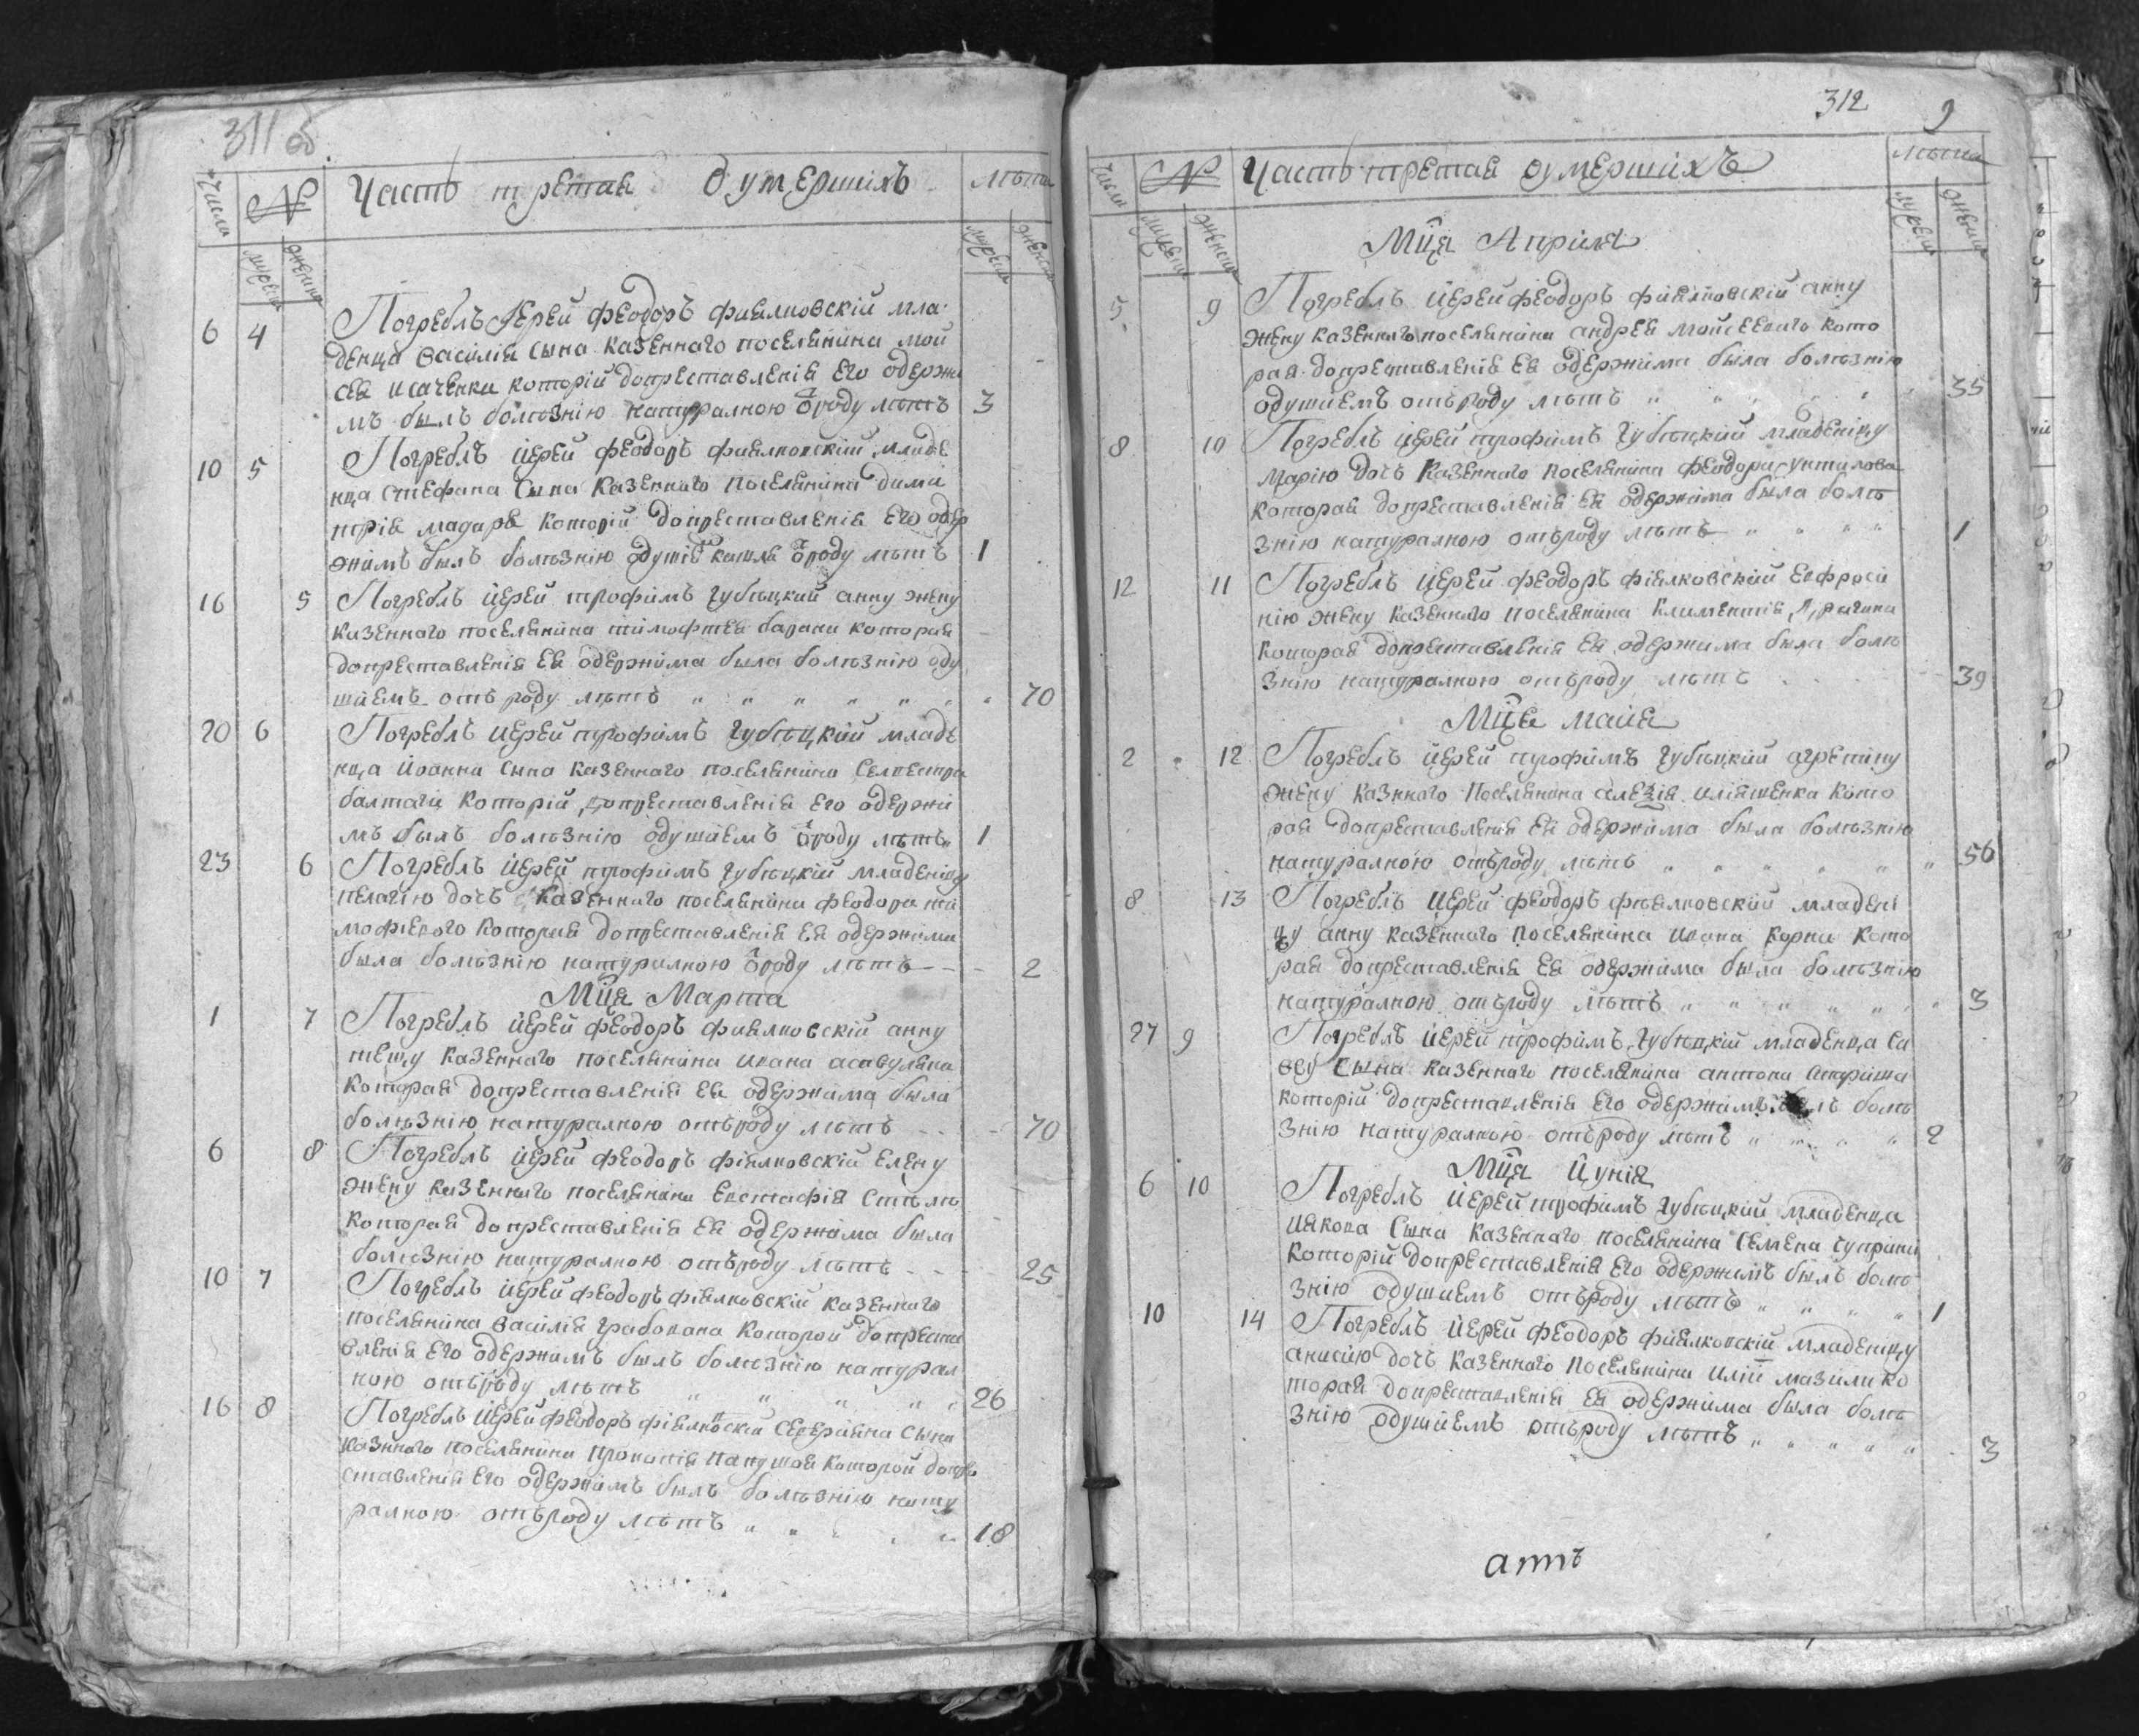 311 об
Числа № Часть третая о умершихъ лѣта
мужеска женска мужеска женска
6 4 Погреблъ Іерей феодоръ фиялковскій мла
денца василія сына казенного поселянина мой
сея исаченка которій допреставленія Его одержи
мъ былъ болѣзнію натуралною ѿроду лѣтъ 3
10 5 Погреблъ іерей феодоръ фиялковскій младе
нца стефана сына казенного поселянина дими
трія мадара которій допреставленія Его одер
жимъ былъ болѣзнію кашля ѿроду лѣтъ 1
16 5 Погреблъ іерей трофимъ губѣцкий анну жену
казенного поселянина тимофтея барана которая
допреставленія Ея одержима была болѣзнію оду
шіемъ отъ роду лѣтъ 70
20 6 Погреблъ іерей трофимъ губѣцкий младе
нца йоанна сына казенного поселянина Селвестра
балтаги которій допреставленія Его одержи
мъ былъ болѣзнію одушіемъ ѿроду лѣтъ 1
23 6 Погреблъ іерей трофимъ губѣцкий младеницу
пелагію дочъ казенного поселянина феодора ти
мофіевого которая допреставленія Ея одержима
была болѣзнію натуралною ѿроду лѣтъ 2
Мца Марта
1 7 Погреблъ іерей феодоръ фиялковскій анну
тещу казенного поселянина ивана асавуляка
которая допреставленія Ея одержима была
болѣзнію натуралною отъ роду лѣтъ 70
6 8 Погреблъ іерей феодоръ фіялковскій Елену
жену казенного поселянина Евстафія
которая допреставленія Ея одержима была
болѣзнію натуралною отъ роду лѣтъ 25
10 7 Погреблъ іерей феодоръ фіялковскій казенного
поселянина василія грабована которой допреста
вленія Его одержимъ былъ болѣзнію натурал
ною отъ роду лѣтъ 26
16 8 Погреблъ іерей феодоръ фіялковскій Северіяна сына
казнного поселянина прокопія папушоя которой допре
ставленія Его одержимъ былъ болѣзнію нату
ралною отъ роду лѣтъ 18
312 9
Числа № Часть третая о умершихъ лѣта
мужеска женска мужеска женска
Мца Априля
5 9 Погреблъ іерей феодоръ фиялковскій анну
жену казенного поселянина андрея мойсеевого кото
рая допреставленія Ея одержима была болѣзнію
одушіемъ отъ роду лѣтъ 35
8 10 Погреблъ іерей трофимъ губѣцкий младеницу
марію дочъ казенного поселянина феодора
которая допреставленія Ея одержима была болѣ
знію натуралною отъ роду лѣтъ 1
12 11 Погреблъ іерей феодоръ фіялковскій Евфроси
нію жену казенного поселянина климентія
которая допреставленія Ея одержима была болѣ
знію натуралною отъ роду лѣтъ 39
Мца маия
2 12 Погреблъ іерей трофимъ губѣцкий агрепину
жену казнного поселянина алеѯія иліяшенка кото
рая допреставленія Ея одержима была болѣзнію
натуралною отъ роду лѣтъ 56
8 13 Погреблъ іерей феодоръ фіялковскій младени
цу анну казенного поселянина ивана корна кото
рая допреставленія Ея одержима была болѣзнію
натуралною отъ роду лѣтъ 3
27 9 Погреблъ іерей трофимъ губѣцкий младенца са
ву сына казенного поселянина антона
которій допреставленія Его одержимъ былъ болѣ
знію натуралною отъ роду лѣтъ 2
Мца Иунія
6 10 Погреблъ іерей трофимъ губѣцкий младенца
иякова сына казенного поселянина семена
которій допреставленія Его одержимъ былъ болѣ
знію одушіемъ отъ роду лѣтъ 1
10 14 Погреблъ іерей феодоръ фиялковскій младеницу
анисію дочъ казенного поселянина иліи мазила ко
торая допреставленія Ея одержима была болѣ
знію одушіемъ отъ роду лѣтъ 3